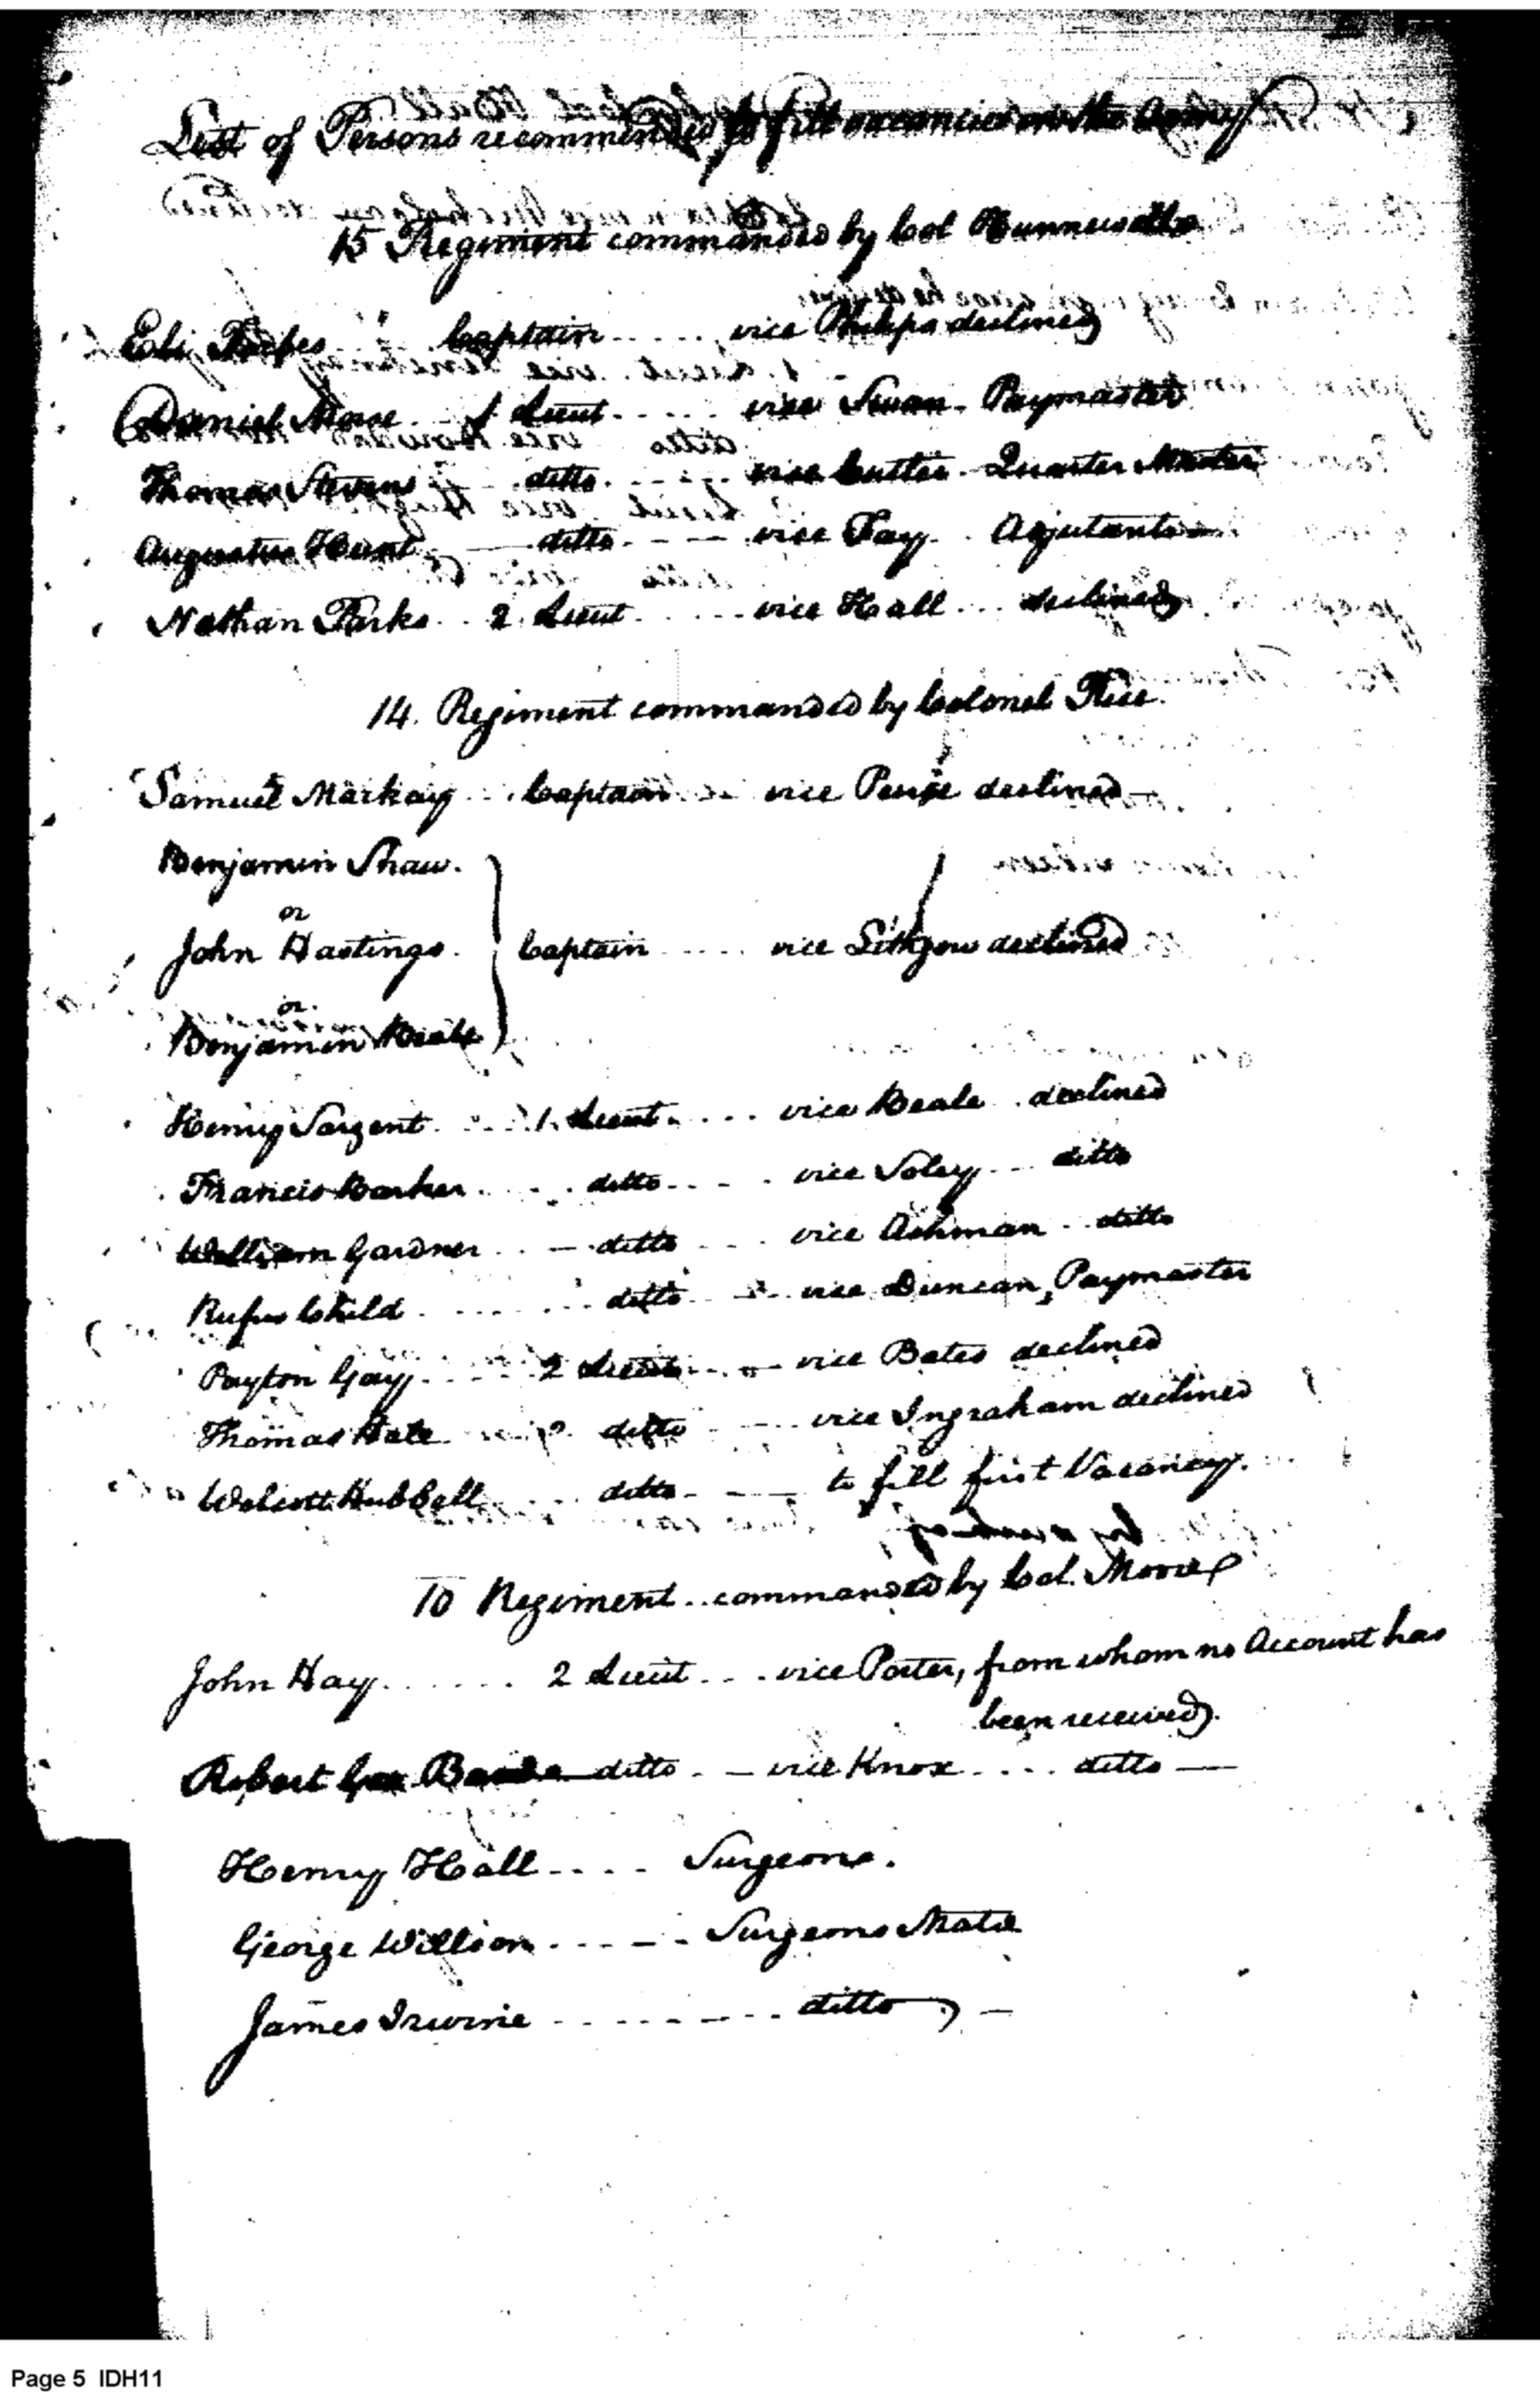 List of Persons recommended to fill vacancies in the Army
15 Regiment commanded by Col Hunnewell
Eli Forbes Captain ..... vice Phelps declined
Daniel Morse .. 1 Lieut ..... vice Swan - Paymaster
Thomas Stevens ditto ..... vice Cutler - Quarter Master
Augustus Hunt ditto - - - vice Fay . Adjutant
Nathan Parks .. 2 Lieut ..... vice Hall ... declined
14. Regiment commanded by Colonel Rice.
Samuel Mackay ... Captain ... vice Peirce declined
Benjamin Shaw.
or
John Hastings. Captain .... vice Lithgow declined
or
Benjamin Beale
Henry Sargent .... 1. Lieut .... vice Beale . declined
Francis Barker .... ditto .... vice Soley ... ditto
William Gardner .. - ditto ... vice Ashman .. ditto
Rufus Child ....... ditto ... vice Duncan, Paymaster
Payton Gay ...... 2 Lieut .... vice Bates declined
Thomas Hale .... 2 ditto --- vice Ingraham declined
Walcott Hubbell ... ditto - --- to fill first Vacancy.
10 Regiment .. commanded by Col. Moore
John Hay ....... 2 Lieut ... vice Porter, from whom no Account has
been received.
Robert ditto . - vice Knox .... ditto —
Henry Hall .... Surgeon.
George Willson ..... Surgeons Mate
James Irwine ........ ditto —
Page 5 IDH11